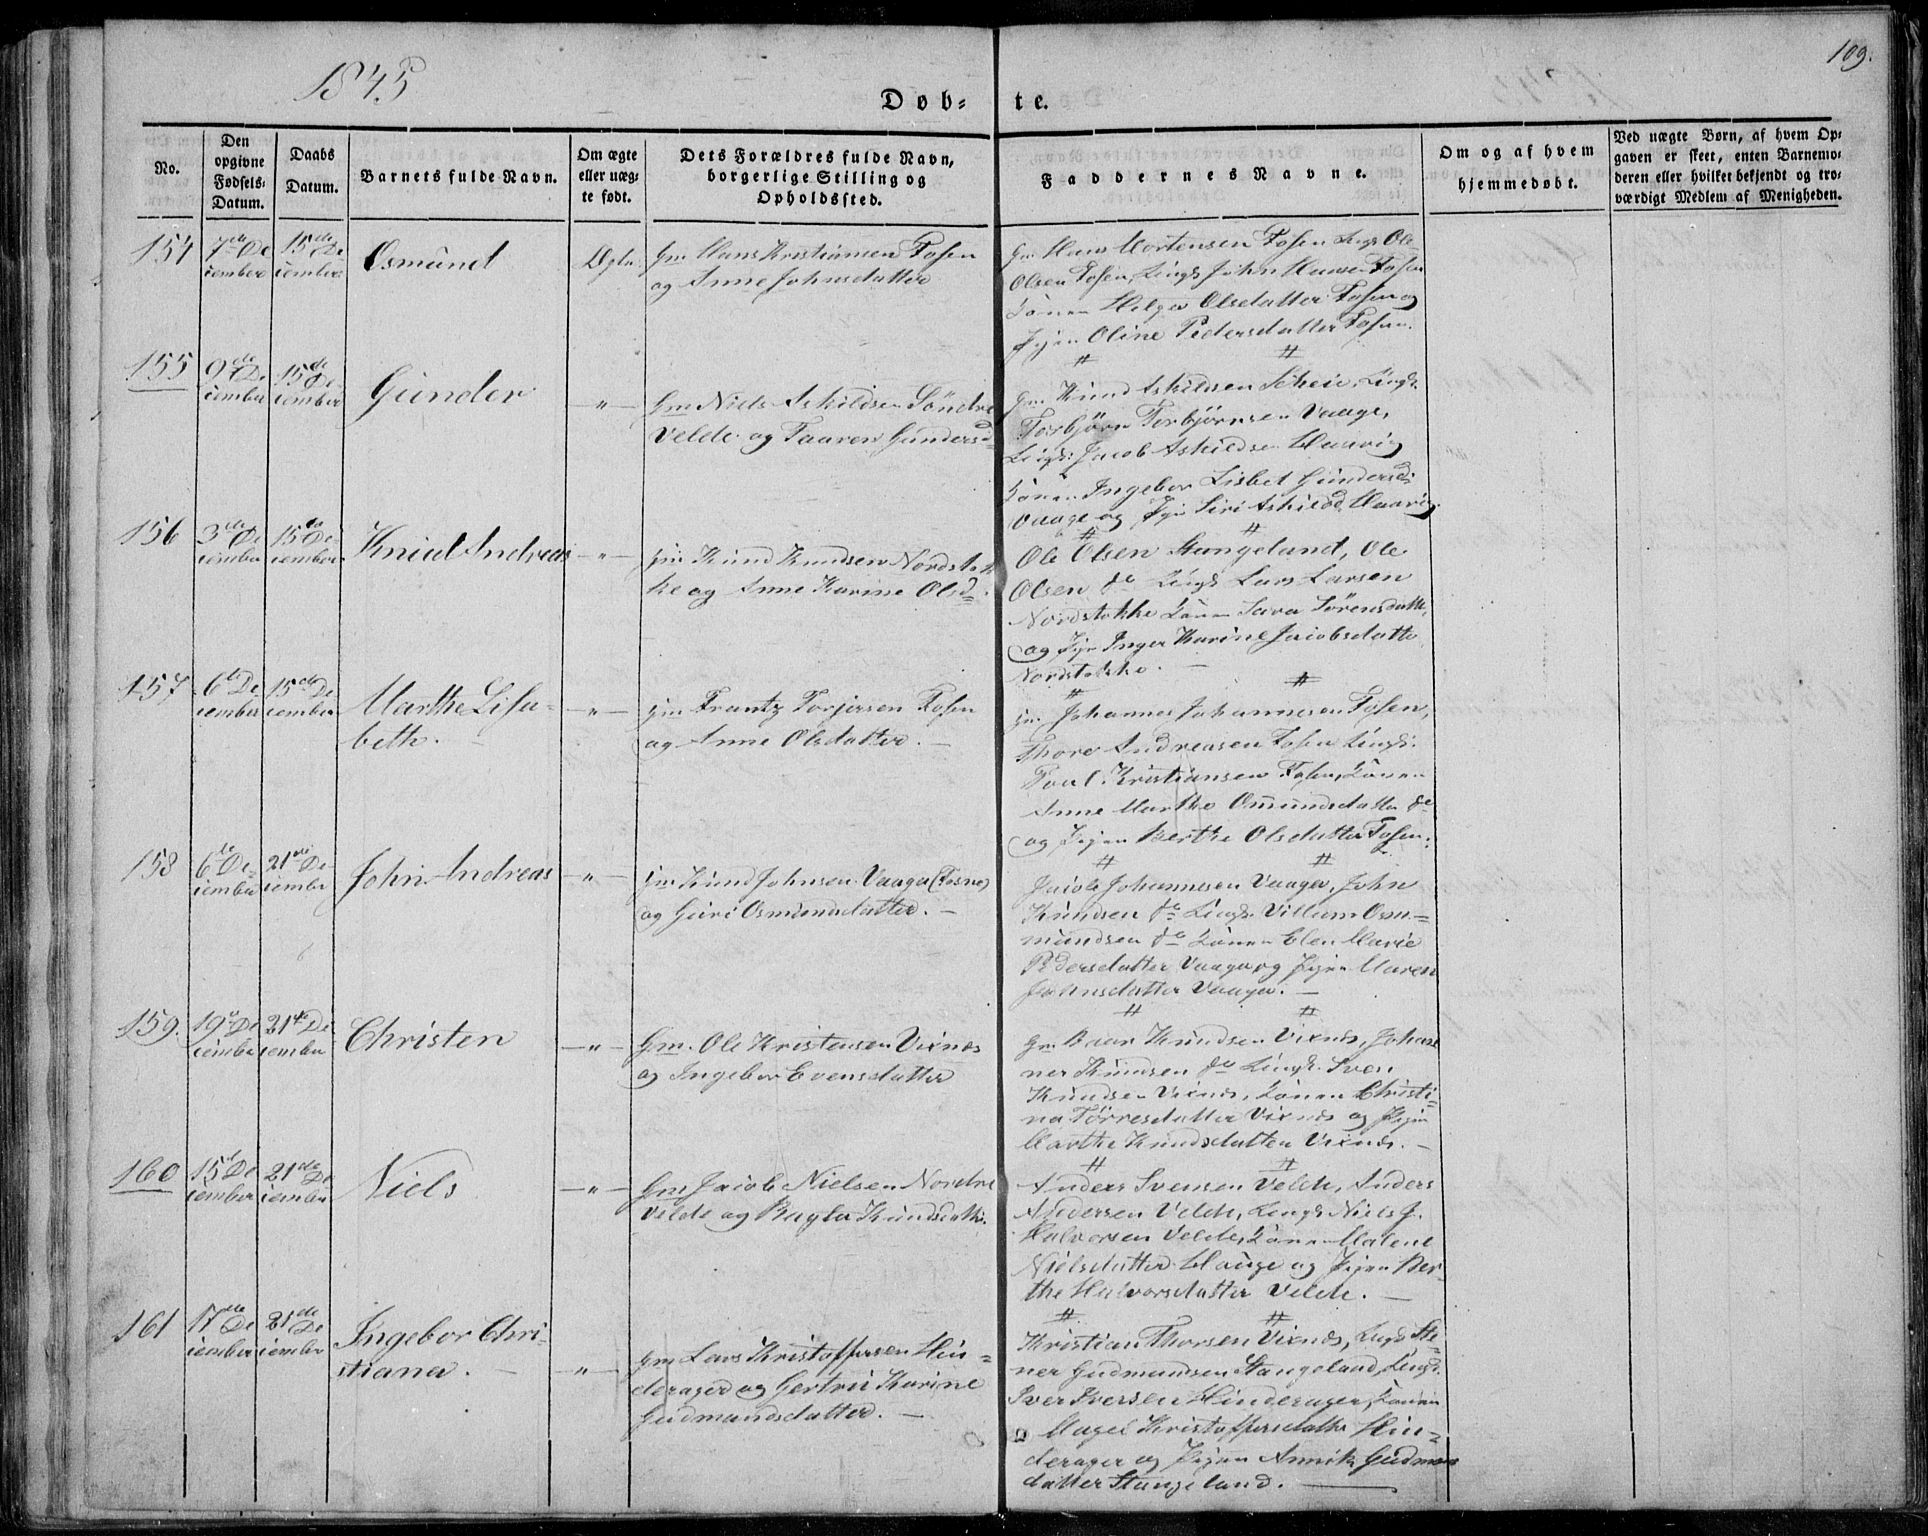 1845
109.
Døb= te.
No.
Den opgivne Fødsels-Datum.
Daabs Datum.
Barnets fulde Navn.
Om ægte eller uægte født.
Dets Forældres fulde Navn, borgerlige Stilling og Opholdssted.
Faddernes Navne.
Om og af hvem hjemmedøbt.
Ved uægte Børn, af hvem Opgaven er skeet, enten Barnemoderen eller hvilket bekjendt og troværdigt Medlem af Menigheden.
154
7de De
cember
15de De
cember
Osmund
Ægte
Gm Hans Kristiansen Fosen
og Anne Johnsdatter
Gm Hans Mortensen Fosen Ungk Ole
Olsen Fosen, Ungk John Hansen Fosen
Konen Helga Olsdatter Fosen og
Pigen Oline Pedersdatter Fosen.
155
9de De
cember
15de De
cember
Gunder
—"—
Gm Niels Askildsen Søndre
Velde og Taaren Gundersd
Gm Knud Askildsen Scheie, Ungk
Torbjørn Torbjørnsen Vaage,
Ungk: Jacob Askildsen Haavig
Konen Ingebor Lisbet Gundersd:
Vaage og Pige Siri Askilsd. Haavig.
156
3de De
cember
15de De
cember
Knud Andreas
—"—
Gm Knud Knudsen Nordstok
ke og Anne Karine Olsd.
Ole Olsen Stangeland, Ole
Olsen do Ungk Lars Larsen
Nordstokke Konen Sara Sørensdatter
og Pige Inger Karine Jacobsdatter
Nordstokke.
157
6te De
cember
15de De
cember
Marthe Lisa-
beth.
—"—
Gm Frantz Torjersen Fosen
og Anne Olsdatter.
Gm Johannes Johannesen Fosen,
Thore Andreasen Fosen Ungk:
Poul Kristiansen Fosen, Konen
Anne Marthe Omundsdatter do
og Pigen Berthe Olsdatter Fosen.
158
6te De
cember
21de De
cember
John Andreas
—"—
Gm Knud Johnsen Vaage (Fosne)
og Guri Osmundsdatter.
Jacob Johannesen Vaage, John
Knudsen do Ungk Villum Os-
mundsen do Konen Elen Marie
Pedersdatter Vaage og Pigen Maren
Johnsdatter Vaage.
159.
19de De
cember
21de De
cember
Christen
—"—
Gm. Ole Kristensen Vixnes
og Ingebor Evensdatter
Gm Baar Knudsen Vixnes, Johan
nes Knudsen do Ungk. Sven
Knudsen Vixnes, Konen Christi-
na Tørresdatter Vixnes og Pigen
Marthe Knudsdatter Vixnes.
160
15de De
cember
21de De
cember
Niels
—"—
Gm Jacob Nielsen Nordre
Velde og Ragla Knudsdatter.
Anders Svensen Velde, Anders
Andersen Velde, Ungk Niels J.
Halvorsen Velde, Konen Malene
Nielsdatter Hauge og Pigen Ber-
the Halvorsdatter Velde.
161
17de De
cember
21de De
cember
Ingebor Chri-
stiana.
—"—
Gm Lars Kristoffersen Hin-
derager og Gertru Karine
Gudmundsdatter.
Kristian Thorsen Vixnes, Ungk Ste-
ner Gudmundsen Stangeland, Ungk.
Iver Iversen Hinderager, Konen
Magel Kristoffersdatter Hin-
derager og Pigen Annik Gudmans
datter Stangeland.